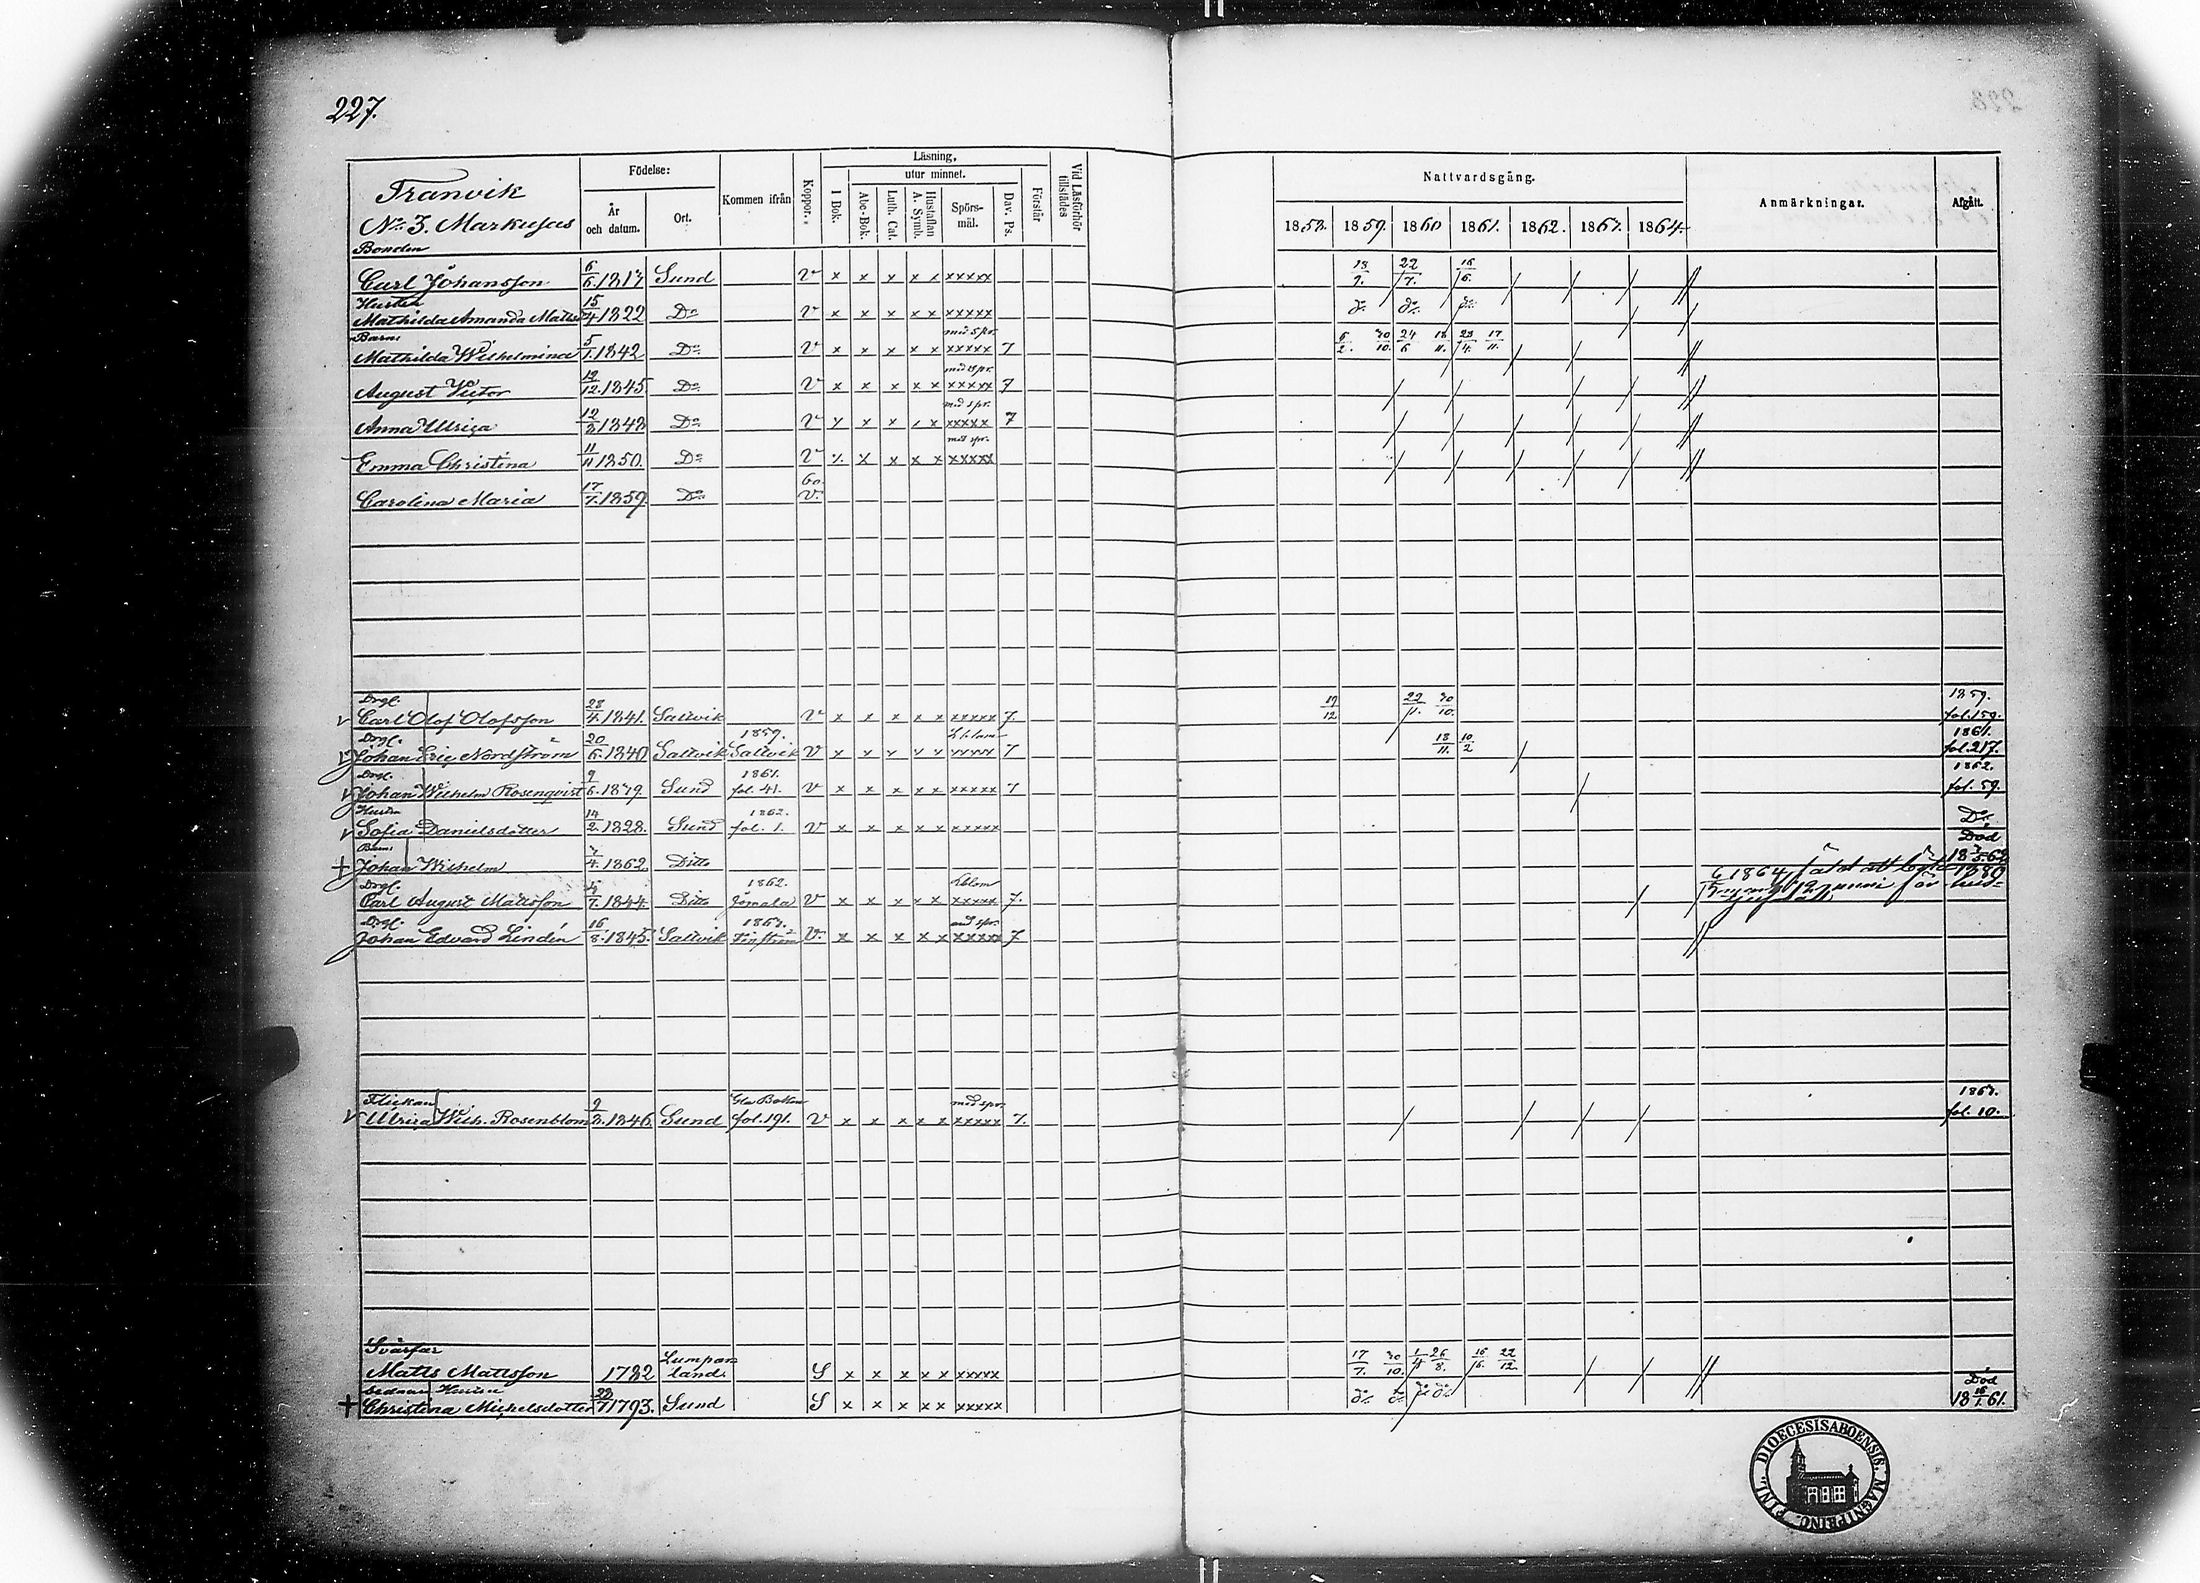 227.
Tranvik
No 3. Markusas
Födelse:
År och datum.
Ort.
Kommen ifrån
Koppor.
Läsning,
utur minnet.
I Bok.
Abc-Bok.
Luth. Cat.
Hustaflan A. Symb.
Spörsmål.
Dav. Ps.
Förstår
Vid Läsförhör tillstädes
Nattvardsgång.
1858. 1859. 1860 1861. 1862. 1863. 1864.
Anmärkningar.
Afgått.
Bonden
Carl Johansson 6/6. 1817 Sund v x x x x x xxxxx 18/9. 22/7. 16/6.
Hustru
Mathilda Amanda Matts 15/4 1822 Do v x x x x x xxxxx do. do. do.
Barn:
med spr.
Mathilda Wilhelmina 5/1. 1842 Do v x x x x x xxxxx 7 6/2. 30/10. 24/6 18/11. 23/4. 17/11.
med spr.
August Victor 12/12. 1845 Do v x x x x x xxxxx 7
med spr.
Anna Ulrica 12/2. 1848 Do v x x x x x xxxxx 7
med spr.
Emma Christina 11/11 1850. Do v x x x x x xxxxx
60.
Carolina Maria 17/7. 1859. Do v.
Drgl. 1859.
Carl Olof Olofsson 28/4. 1841. Saltvik v x x x x x xxxxx 7. 19/12 22/1. 30/10. fol. 159.
Drgl. 1859. 1861.
Johan Eric Nordström 20/6. 1840 Saltvik Saltvik v x x x x x xxxxx 7 18/11. 10/2 fol. 217.
Drgl. 1861. 1862.
Johan Wilhelm Rosenqvist 9/6. 1839. Sund fol. 41. v x x x x x xxxxx 7 fol. 59.
Hustru 1862.
Sofia Danielsdotter 14/2. 1828. Sund fol. 1. v x x x x x xxxxx Do
Barn: Död
Johan Wilhelm 1862 Ditto
Drgl. 1862.
Carl August Mattsson 1844. Ditto Jomala v x x x x x xxxxx 7.
Drgl. 1863. med spr.
Johan Edvard Lindén 16/8. 1845. Saltvik Finström v. x x x x x xxxxx 7
Flickan med spr. 1863.
Ulrica Wilh. Rosenblom 9/3. 1846. Sund fol. 191. v x x x x x xxxxx 7. fol. 10.
Svärfar Lumpar-
Matts Mattsson 1782 land. S x x x x x xxxxx 17/7. 30/10. 1/4 26/8. 16/6. 22/12.
Hustru Död
Christina Michelsdotter 1793. Sund S x x x x x xxxxx do. do. do. do. 18 16/1. 61.
FINL. DIOECESIS ABOENSIS. MAGNI PRINC.